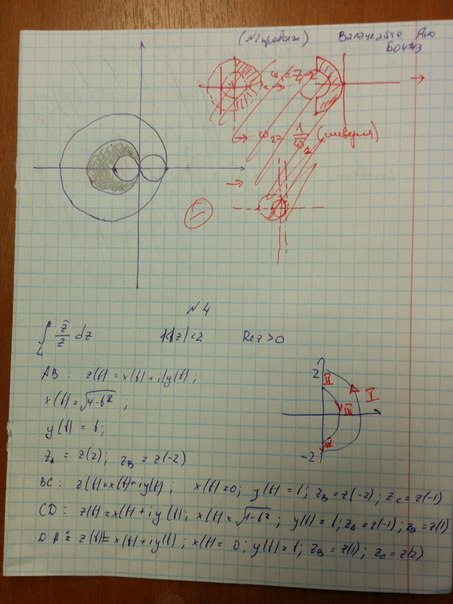 (N1 правая)
Б04-43
ω₁ = z - 2
→ ω₂ = 1/ω₁ (инверсия)
N 4
∫_L z̄/z dz 1<|z|<2 Re z>0
AB: z(t) = x(t) + iy(t);
x(t) = √(4-t²);
y(t) = t;
z_A = z(2); z_B = z(-2)
BC: z(t) = x(t)+iy(t); x(t)=0; y(t)=t; z_B=z(-2), z_C=z(-1)
CD: z(t)=x(t)+iy(t); x(t)=√(1-t²); y(t)=t; z_A=z(-1); z_B=z(1)
DA: z(t)=x(t)+iy(t); x(t)=0; y(t)=t; z_B=z(1); z_C=z(2)
2
II
I
III
-2